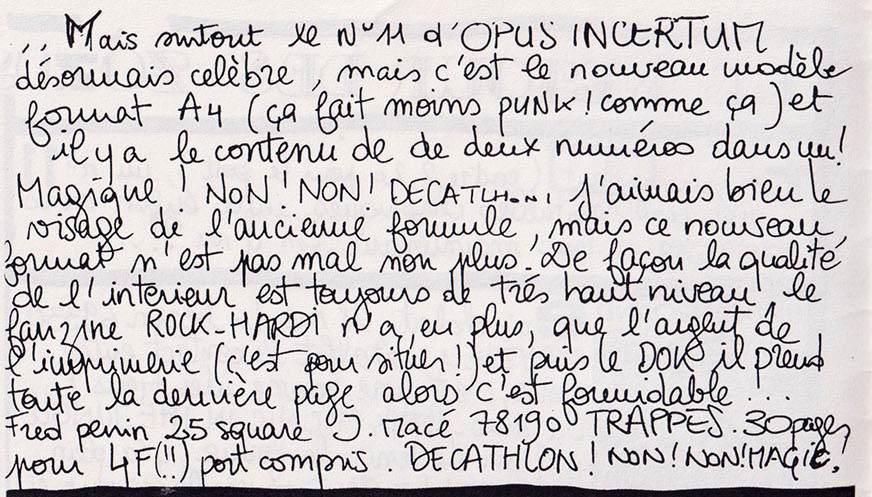 ... Mais surtout le N°11 d'OPUS INCERTUM
désormais celèbre, mais c'est le nouveau modèle
format A4 (ça fait moins pUNK! comme ça) et
il y a le contenu de de deux numéros dans un!
Magique! NON! NON! DECATLH.... J'aimais bien le
visage de l'ancienne formule, mais ce nouveau
format n'est pas mal non plus. De façon la qualité
de l'interieur est toujours de trés haut niveau, le
fanzine ROCK-HARDI n'a, en plus, que l'argent de
l'imprimerie (c'est pour situer!) et puis le DOK il prend
toute la dernière page alors c'est formidable...
Fred penin 25 square J. Macé 78190 TRAPPES. 30 pages
pour 4F(!!) port compris. DECATHLON! NON! NON! MAGIC!